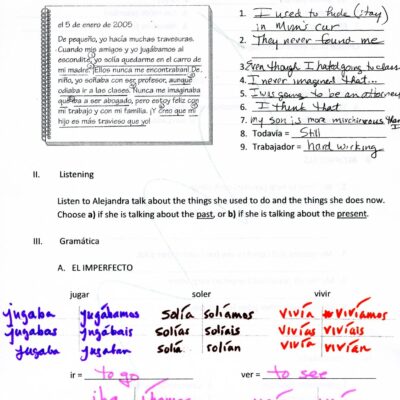 el 5 de enero de 2005
De pequeño, yo hacía muchas travesuras.
Cuando mis amigos y yo jugábamos al
escondite, yo solía quedarme en el carro de
mi madre. ¡Ellos nunca me encontraban! De
niño, yo soñaba con ser profesor, aunque
odiaba ir a las clases. Nunca me imaginaba
que iba a ser abogado, pero estoy feliz con
mi trabajo y con mi familia. ¡Y creo que mi
hijo es más travieso que yo!
1. I used to hide (stay)
in Mum's car
2. They never found me
3. Even though I hated going to class
4. I never imagined that...
5. I was going to be an attorney
6. I think that
7. my son is more mischievous than
8. Todavía = Still
9. Trabajador = hard working
II. Listening
Listen to Alejandra talk about the things she used to do and the things she does now.
Choose a) if she is talking about the past, or b) if she is talking about the present.
III. Gramática
A. EL IMPERFECTO
jugar soler vivir
jugaba jugábamos solía solíamos vivía vivíamos
jugabas jugábais solías solíais vivías vivíais
jugaba jugaban solía solían vivía vivían
ir = to go ver = to see
iba íbamos